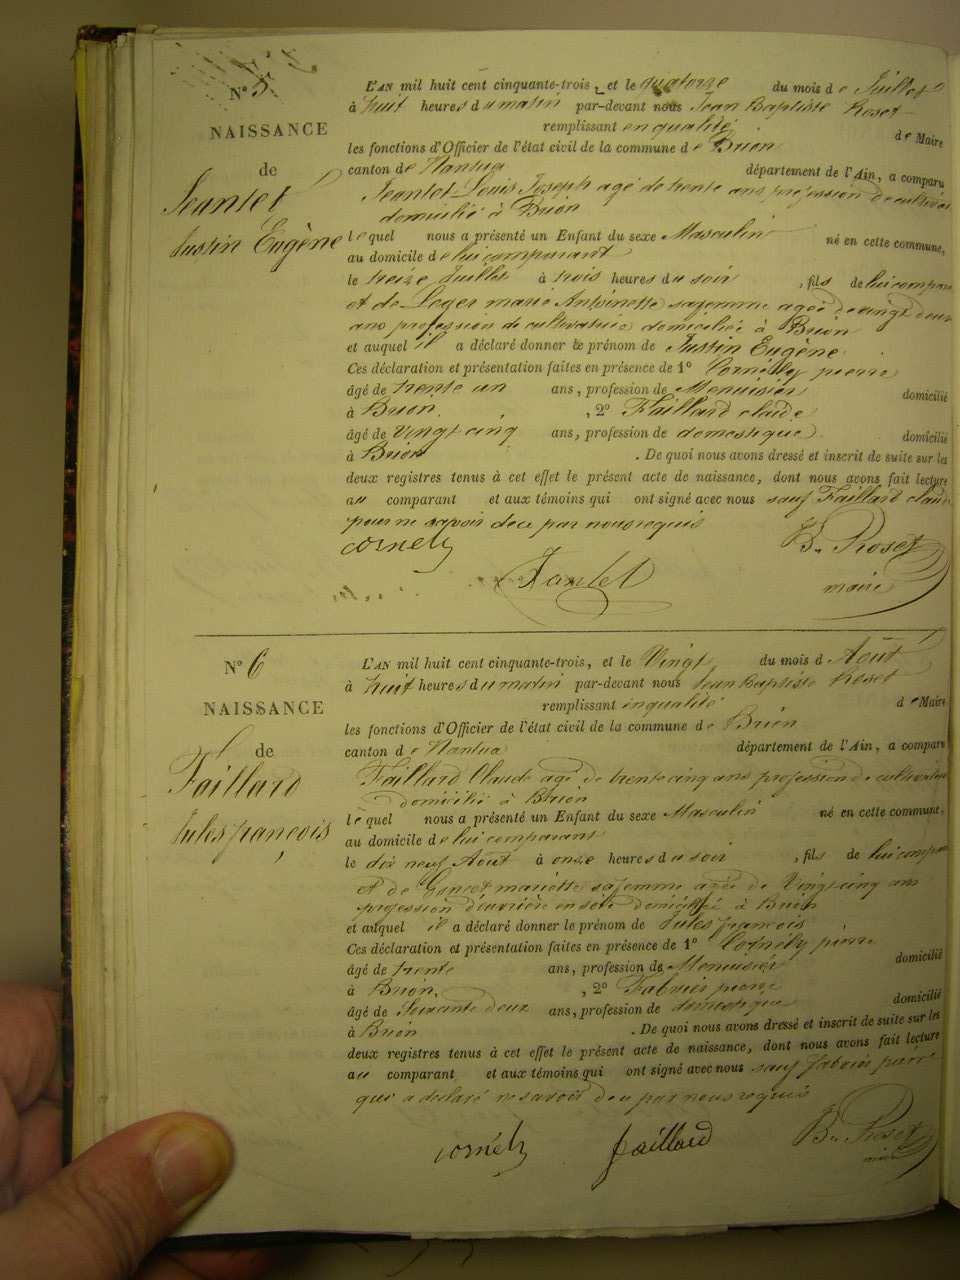 N° 5
NAISSANCE
de
Jeantet
Justin Eugène
L'AN mil huit cent cinquante-trois, et le quatorze du mois de Juillet
à huit heures du matin par-devant nous Jean Baptiste Roset
remplissant en qualité de Maire
les fonctions d'Officier de l'état civil de la commune de Brion
canton de Nantua département de l'Ain, a comparu
Jeantet Louis Joseph agé de trente ans profession de cultivateur
domicilié à Brion
lequel nous a présenté un Enfant du sexe Masculin né en cette commune,
au domicile de lui comparant
le treize Juillet à trois heures du soir, fils de lui comparant
et de Leger marie Antoinette sa femme agée de vingt deux
ans profession de cultivatrice domiciliée à Brion
et auquel il a déclaré donner le prénom de Justin Eugène.
Ces déclaration et présentation faites en présence de 1° Cornelly pierre
âgé de trente un ans, profession de Menuisier domicilié
à Brion, 2° Faillard claude
âgé de vingt cinq ans, profession de domestique domicilié
à Brion. De quoi nous avons dressé et inscrit de suite sur les
deux registres tenus à cet effet le présent acte de naissance, dont nous avons fait lecture
au comparant et aux témoins qui ont signé avec nous sauf Faillard claude
pour ne savoir de ce par nous requis
Cornely
Jantet
B. Roset
maire
N° 6
NAISSANCE
de
Faillard
Jules françois
L'AN mil huit cent cinquante-trois, et le Vingt du mois d Août
à huit heures du matin par-devant nous Jean Baptiste Roset
remplissant en qualité de Maire
les fonctions d'Officier de l'état civil de la commune de Brion
canton de Nantua département de l'Ain, a comparu
Faillard Claude agé de trente cinq ans profession de cultivateur
domicilié à Brion
lequel nous a présenté un Enfant du sexe Masculin né en cette commune,
au domicile de lui comparant
le dix neuf Août à onze heures du soir, fils de lui comparant
et de mariette sa femme agée de Vingt cinq ans
profession d'ouvrière en soie domiciliée à Brion
et auquel il a déclaré donner le prénom de Jules françois
Ces déclaration et présentation faites en présence de 1° Cornély pierre
âgé de trente ans, profession de Menuisier domicilié
à Brion, 2° Fabrier pierre
âgé de Soixante deux ans, profession de domestique domicilié
à Brion. De quoi nous avons dressé et inscrit de suite sur les
deux registres tenus à cet effet le présent acte de naissance, dont nous avons fait lecture
au comparant et aux témoins qui ont signé avec nous sauf fabrier pierre
qui a déclaré ne savoir de ce par nous requis
Cornély
faillard
B. Roset
maire